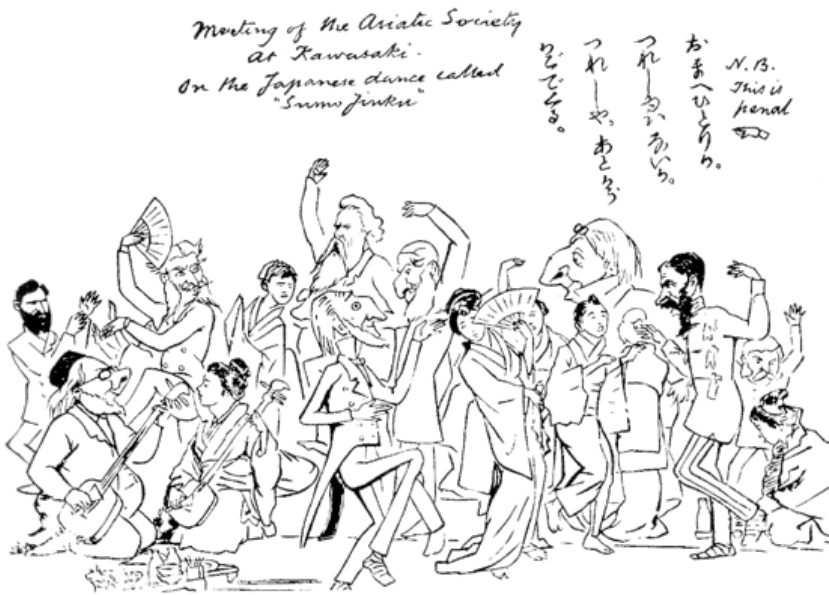 Meeting of the Asiatic Society
at Kawasaki.
On the Japanese dance called
"Sumo Jinku"
N.B.
This is
penal
おまへひとりか。
つれしゆハないか。
つれしや、あとから
かごでくる。